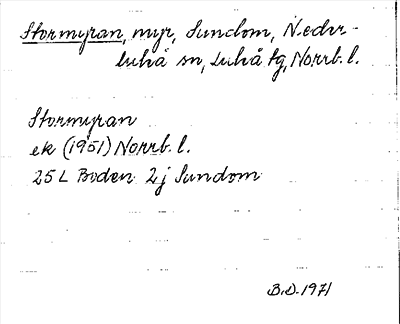 Stormyran, myr, Sundom, Neder-
luleå sn, Luleå tg, Norrb. l.
Stormyran
ek (1951) Norrb. l.
25 L Boden 2j Sundom
B.D. 1971